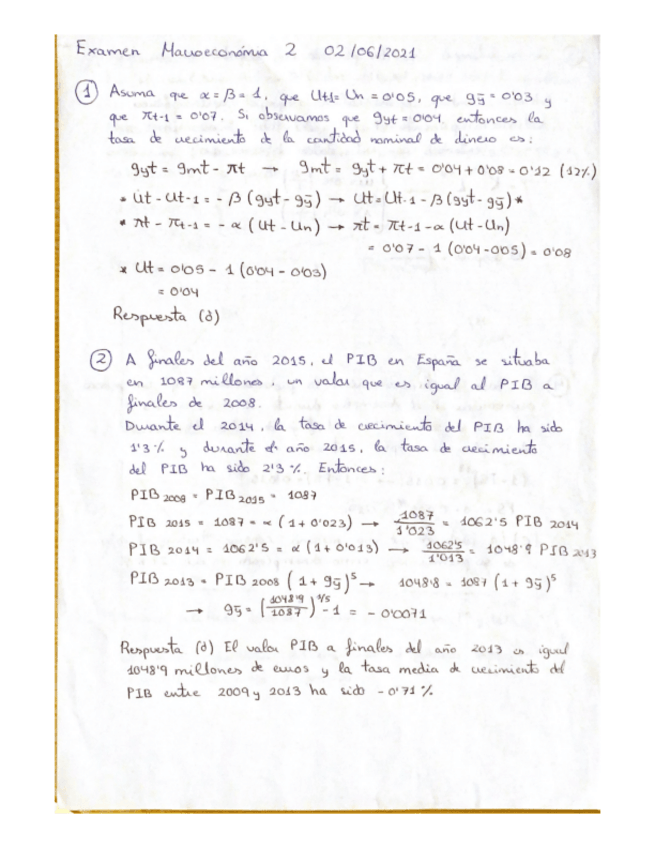 Examen Macroeconomía 2 02/06/2021
① Asuma que α = β = 1, que Ut-1 = Un = 0'05, que gȳ = 0'03 y
que πt-1 = 0'07. Si observamos que gyt = 0'04 entonces la
tasa de crecimiento de la cantidad nominal de dinero es:
gyt = gmt - πt → gmt = gyt + πt = 0'04 + 0'08 = 0'12 (12%)
* Ut - Ut-1 = - β (gyt - gȳ) → Ut = Ut-1 - β (gyt - gȳ) *
* πt - πt-1 = - α (Ut - Un) → πt = πt-1 - α (Ut - Un)
= 0'07 - 1 (0'04 - 0'05) = 0'08
* Ut = 0'05 - 1 (0'04 - 0'03)
= 0'04
Respuesta (d)
② A finales del año 2015, el PIB en España se situaba
en 1087 millones, un valor que es igual al PIB a
finales de 2008.
Durante el 2014, la tasa de crecimiento del PIB ha sido
1'3% y durante el año 2015, la tasa de crecimiento
del PIB ha sido 2'3%. Entonces:
PIB 2008 = PIB 2015 = 1087
PIB 2015 = 1087 = α (1 + 0'023) → 1087/1'023 = 1062'5 PIB 2014
PIB 2014 = 1062'5 = α (1 + 0'013) → 1062'5/1'013 = 1048'9 PIB 2013
PIB 2013 = PIB 2008 (1 + gȳ)⁵ → 1048'8 = 1087 (1 + gȳ)⁵
→ gȳ = (1048'9/1087)^1/5 - 1 = - 0'0071
Respuesta (d) El valor PIB a finales del año 2013 es igual
1048'9 millones de euros y la tasa media de crecimiento del
PIB entre 2009 y 2013 ha sido - 0'71%